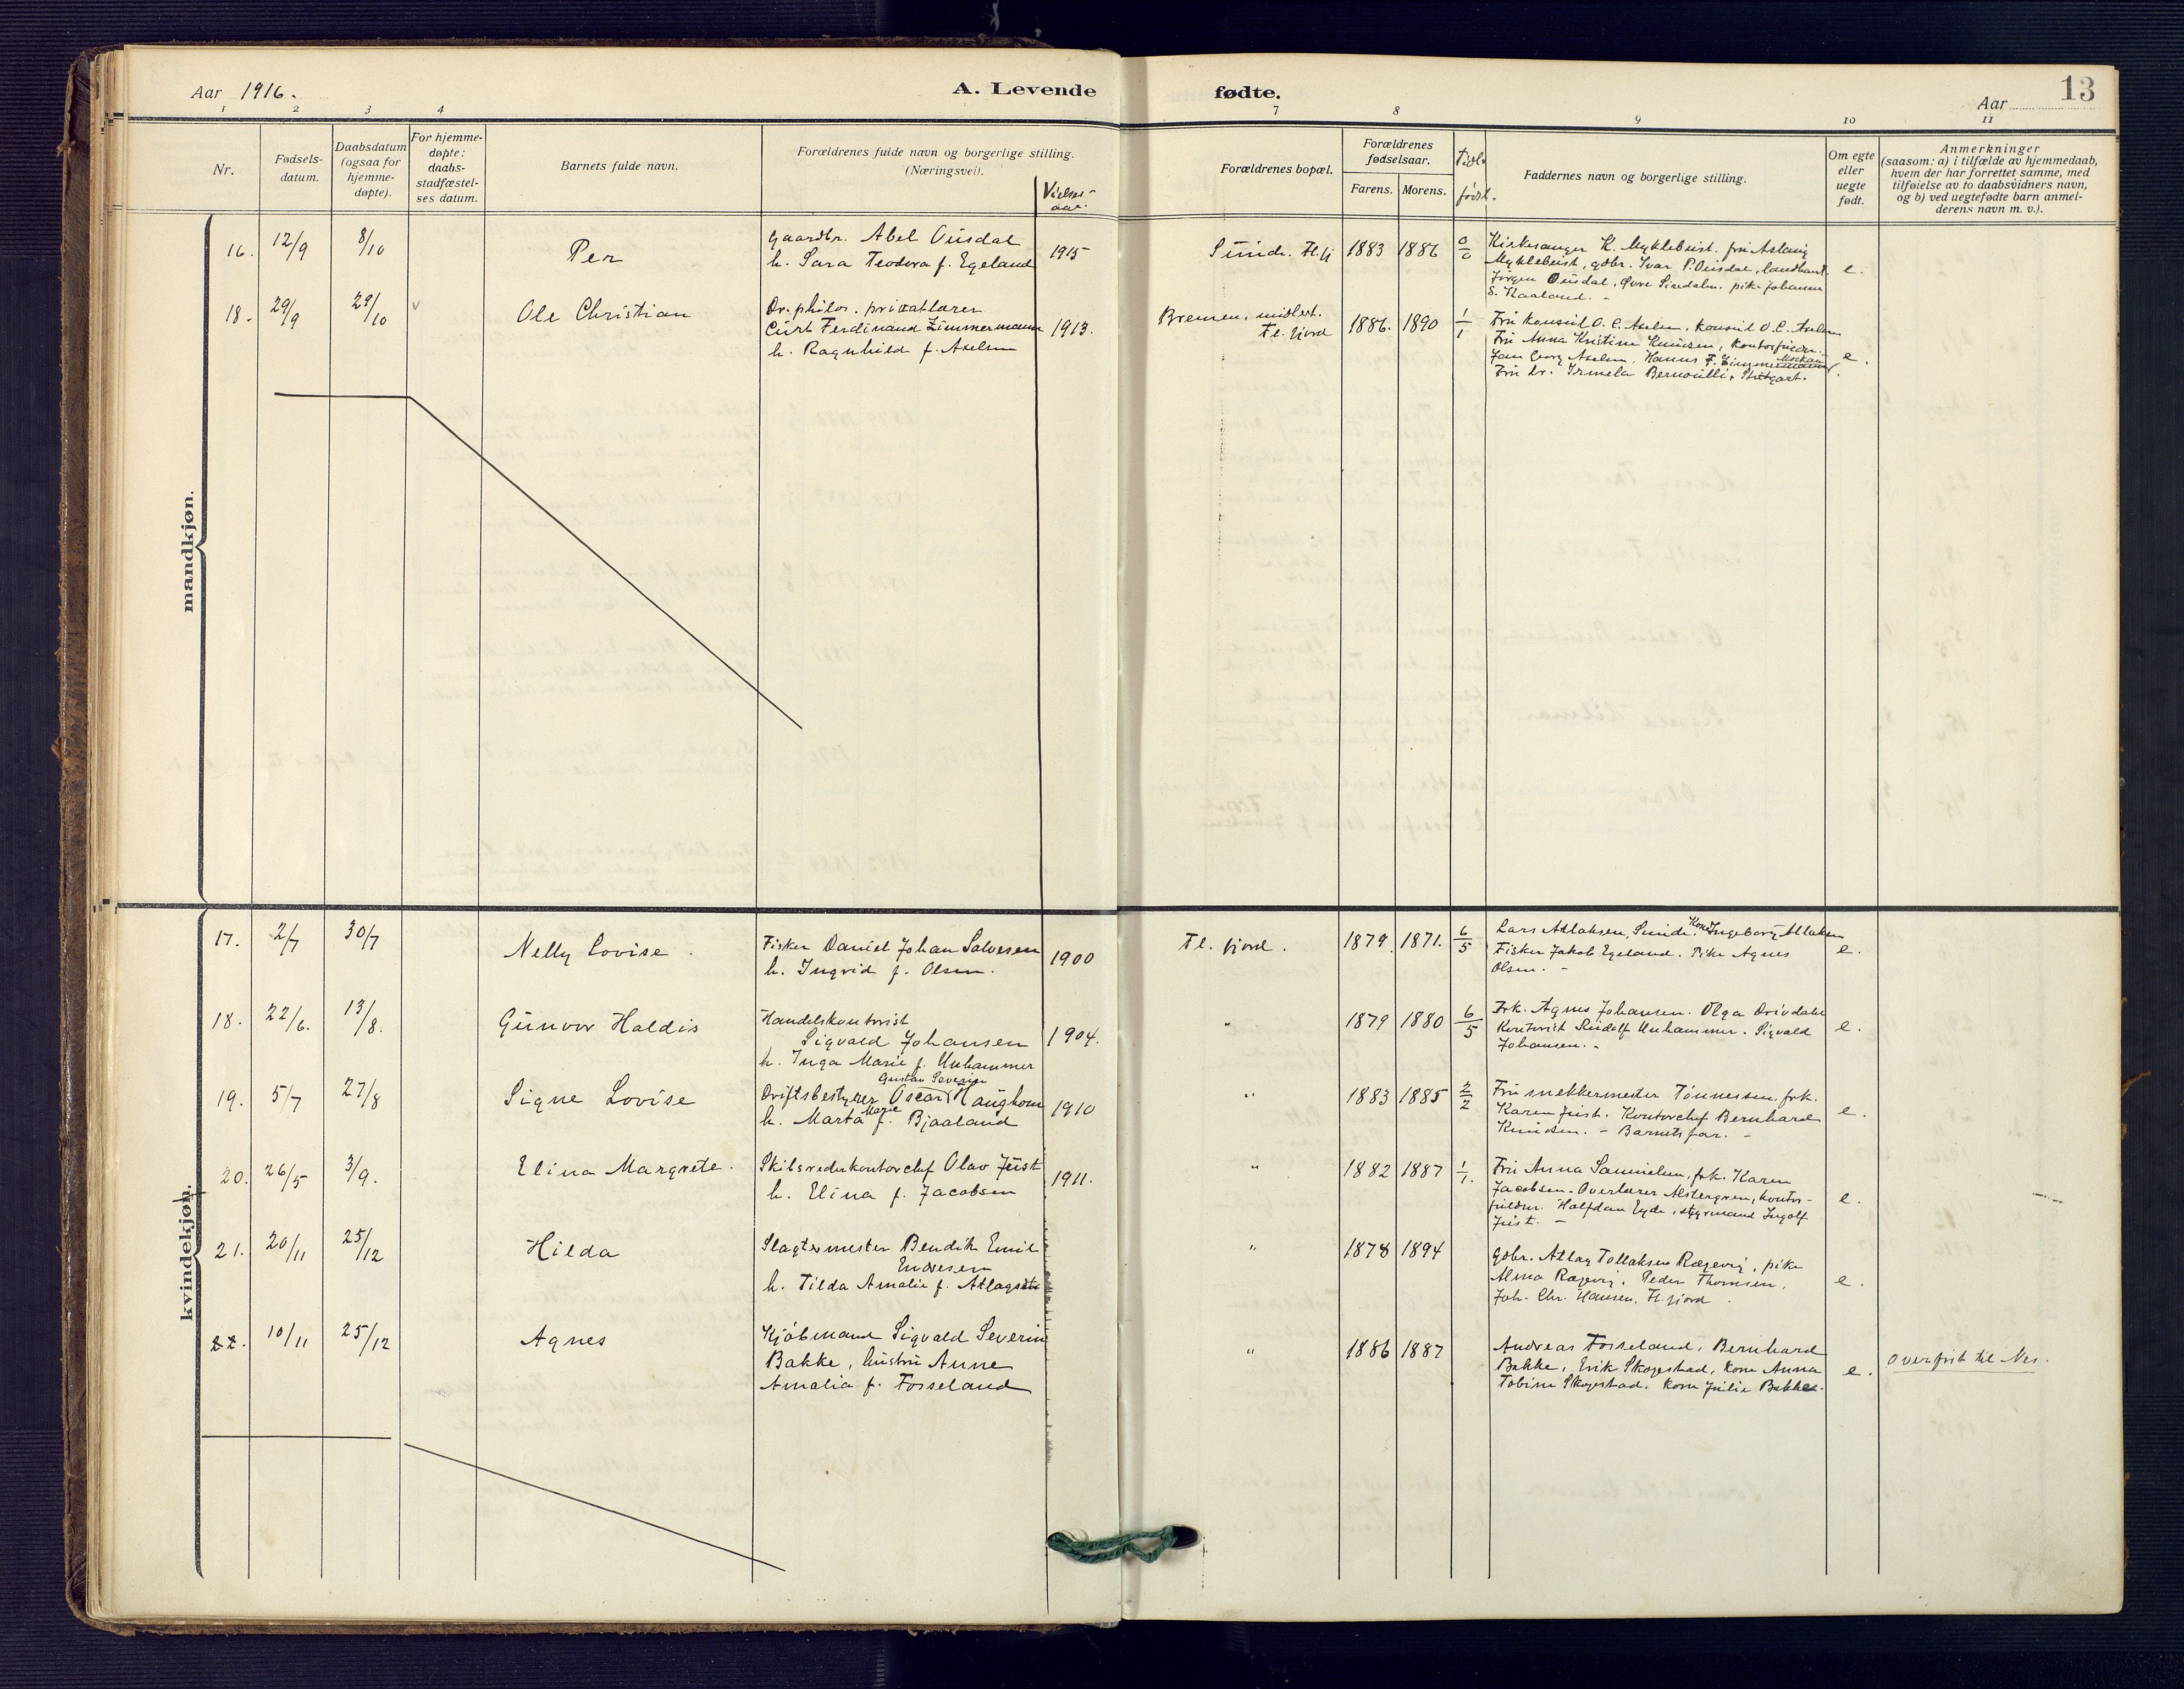 Aar 1916.
A. Levende fødte.
13
Aar
1 2 3 4 7 8 9 10 11
Nr.
Fødsels-
datum.
Daabsdatum
(ogsaa for
hjemme-
døpte).
For hjemme-
døpte:
daabs-
stadfæstel-
ses datum.
Barnets fulde navn.
Forældrenes fulde navn og borgerlige stilling.
(Næringsvei).
Vielses-
aar.
Forældrenes bopæl.
Forældrenes
fødselsaar.
Farens. Morens.
Tidl.
født.
Faddernes navn og borgerlige stilling.
Om egte
eller
uegte
født.
Anmerkninger
(saasom: a) i tilfælde av hjemmedaab,
hvem der har forrettet samme, med
tilføielse av to daabsvidners navn,
og b) ved uegtefødte barn anmel-
derens navn m. v.).
mandkjøn.
16. 12/9 8/10 Per
Gaardbr. Abel Ousdal
h. Sara Teodora f. Egeland
1915
Sunde. Fl.fj 1883 1886 0/0
Kirkesanger K. Myklebust. fru Aslaug
Myklebust, gdbr. Ivar P. Ousdal, landhand.
Jørgen Ousdal, Øvre Sirdalen. pike Johanne
S. Kaaland. -
e.
18. 29/9 29/10 v Ole Christian
Dr. philos. privatlærer
Curt Ferdinand Zimmermann
h. Ragnhild f. Axelsen
1913.
Bremen, midlert.
Fl. fjord
1886. 1890 1/1
Fru Konsul O. C. Axelsen, konsul O. C. Axelsen
Fru Anna Kristine Knudsen, kontorfuldm.
Jan Georg Axelsen, Hanns F. Zimmermann
Fru Dr. Irmela Bernoulli, Stutgart.
e.
kvindekjøn.
17. 2/7 30/7 Nelly Lovise.
Fisker Daniel Johan Salvesen
h. Ingrid f. Olsen.
1900
Fl. fjord. 1879 1871. 6/5
Lars Atlaksen, Sunde. Kone Ingeborg Atlaksen
Fisker Jakob Egeland. Pike Agnes
Olsen. -
e.
18. 22/6. 13/8. Gunvor Haldis
Handelskontorist
Sigvald Johansen
h. Inga Marie f. Unhammer
1904.
" 1879 1880 6/5
Frk. Agnes Johansen. Olga Drivdahl
Kontorist Rudolf Unhammer. Sigvald
Johansen. -
e.
19. 5/7 27/8 Signe Lovise
Gustav Severin
Driftsbestyrer Oscar Haughom
h. Marta Marie f. Bjaaland
1910
" 1883 1885 2/2
Fru snekkermester Tønnessen, frk.
Karen Just. Kontorchef Bernhard
Knudsen. - Barnets far. -
e.
20. 26/5 3/9. Elina Margrete.
Skibsrederkontorchef Olav Just
h. Elina f. Jacobsen
1911.
" 1882 1887 1/1.
Fru Anna Samuelsen, frk. Karen
Jacobsen. Overlærer Alstergren, kontor-
fuldm. Halfdan Eyde, styrmand Ingolf
Just. -
e.
21. 20/11 25/12 Hilda
Slagtermester Bendik Emil
Endresen
h. Tilda Amalie f. Atlagsen
" 1878 1894
Gdbr. Atlag Tollaksen Rægevig, pike
Alma Rægevig, Peder Thomsen,
Joh. Chr. Hansen, Fl. fjord.
e.
22. 10/11 25/12 Agnes
Kjøbmand Sigvald Severin
Bakke, hustru Anne
Amalia f. Fosseland
" 1886 1887
Andreas Fosseland, Bernhard
Bakke, Erik Skogestad, kone Anna
Tobine Skogestad. kone Julie Bakke.
e.
Overført til Nes.